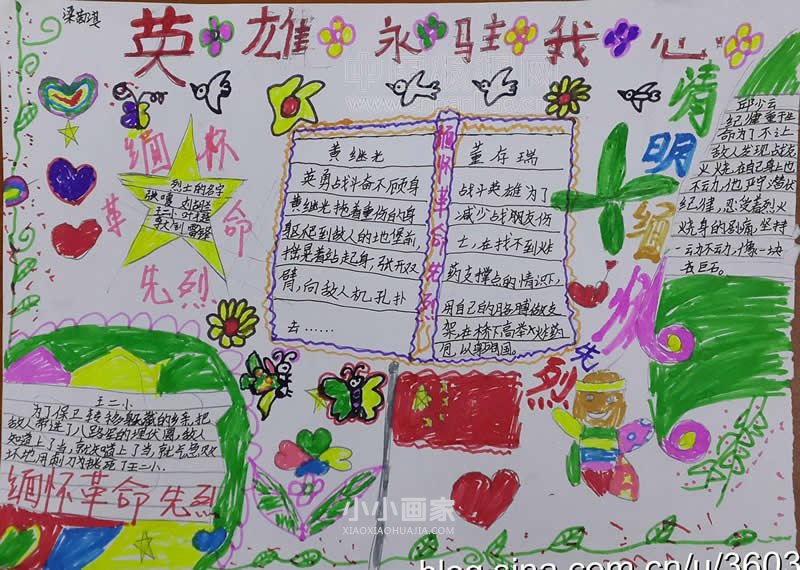 英雄永驻我心
缅怀
革命
先烈
烈士的名字
黄继光
英勇战斗奋不顾身
黄继光拖着重伤的身
躯爬到敌人的地堡前,
摇晃着站起身,张开双
臂,向敌人机孔扑
去……
缅怀革命先烈
董存瑞
战斗英雄为了
减少战朋友伤
士,在找不到炸
药支撑点的情识下,
用自己的
架,在桥下高举炸药
清明缅怀先烈
邱少云
纪律重于生
命为了不让
敌人发现战友
火烧在自己身上也
不动,他严守潜伏
纪律,忍受着烈火
烧身的剧痛,坚持
一动不动,像一块
王二小
为了保卫转移躲藏的乡亲,把
敌人带进了八路军的埋伏圈,敌人
知道上了当,就知道上了当,就气急败
坏地用刺刀挑死了王二小。
缅怀革命先烈
小小画家
XIAOXIAOHUAJIA.COM
blog.sina.com.cn/u/3603